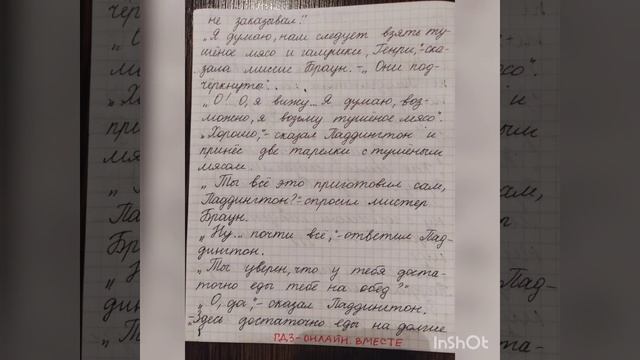 не заказывал!"
„Я думаю, нам следует взять ту-
шёное мясо и галушки, Генри,"-ска-
зала миссис Браун. -„Они под-
чёркнуты".
„О! О, я вижу... Я думаю, воз-
можно, я возьму тушёное мясо".
„Хорошо,"- сказал Паддингтон и
принёс две тарелки с тушёным
мясом.
„Ты всё это приготовил сам,
Паддингтон?"- спросил мистер
Браун.
„Ну... почти всё,"- ответил Пад-
дингтон.
„Ты уверен, что у тебя доста-
точно еды тебе на обед?"
„О, да,"- сказал Паддингтон.
-„Здесь достаточно еды на долгие
ГДЗ-ОНЛАЙН. ВМЕСТЕ
InShOt